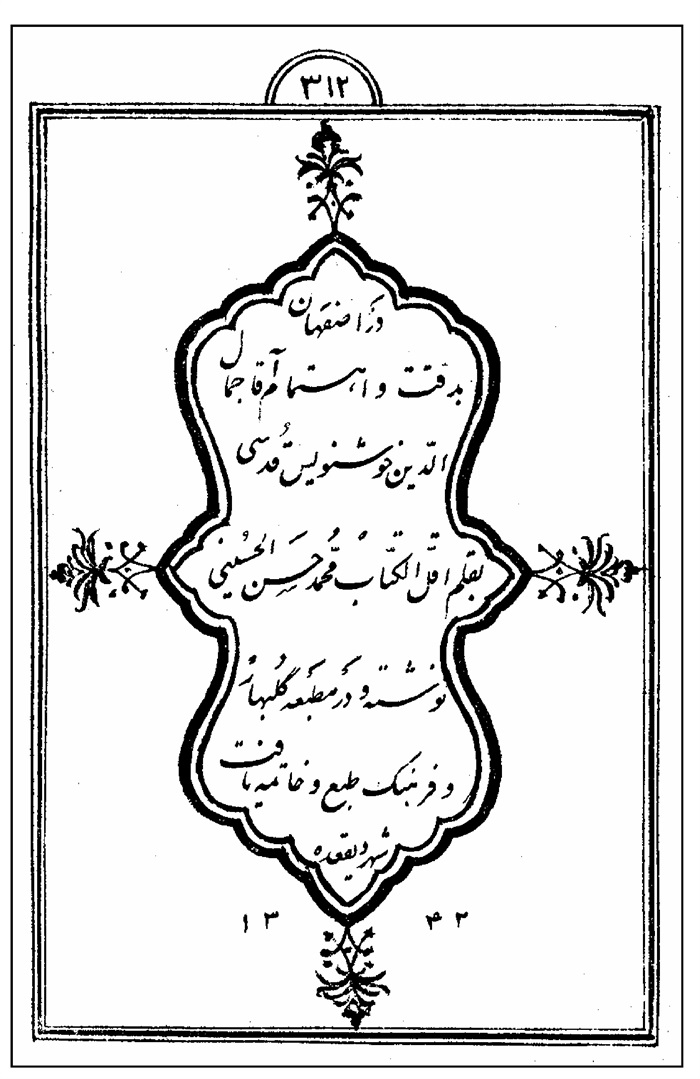 ۳۱۲
در اصفهان
بدقت و اهتمام آقا جمال
الدین خوشنویس قدسی
بقلم اقل الکتاب محمد حسن الحسینی
نوشته و در مطبعه گلبهار
و فرهنگ طبع و خاتمیه یافت
شهر ذیقعده
۱۳ ۴۲